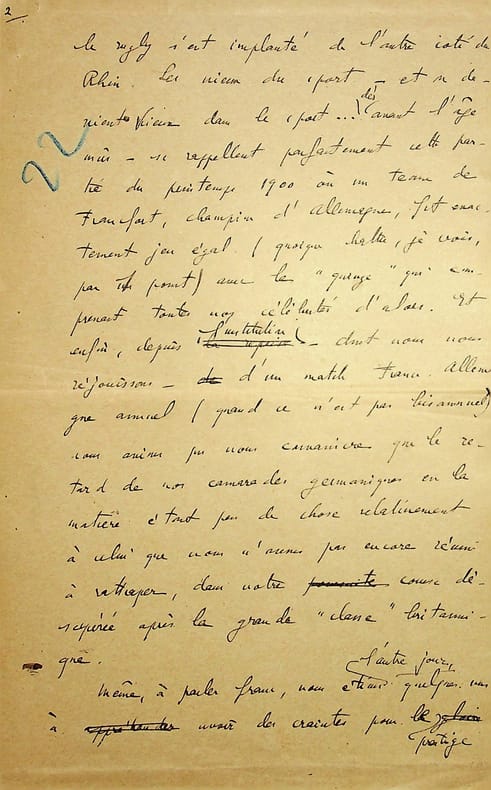 2
22
le rugby s'est implanté de l'autre coté du
Rhin. Les vieux du sport — et on de-
vient vieux dans le sport... dès avant l'âge
mûr — se rappellent parfaitement cette par-
tie du printemps 1900 où un team de
Francfort, champion d'Allemagne, fit exac-
tement jeu égal (quoique battu, je crois,
par un point) avec le "quinze" qui com-
prenait toutes nos célébrités d'alors. Et
enfin, depuis l'institution — dont nous nous
réjouissons — d'un match France-Allema-
gne annuel (quand ce n'est pas bisannuel)
nous avions pu nous convaincre que le re-
tard de nos camarades germaniques en la
matière était peu de chose relativement
à celui que nous n'avons pas encore réussi
à rattraper, dans notre poursuite course dé-
sespérée après la grande "classe" britanni-
que.
Même, à parler franc, nous étions l'autre jour, quelques-uns
à appréhender avoir des craintes pour le
prestige